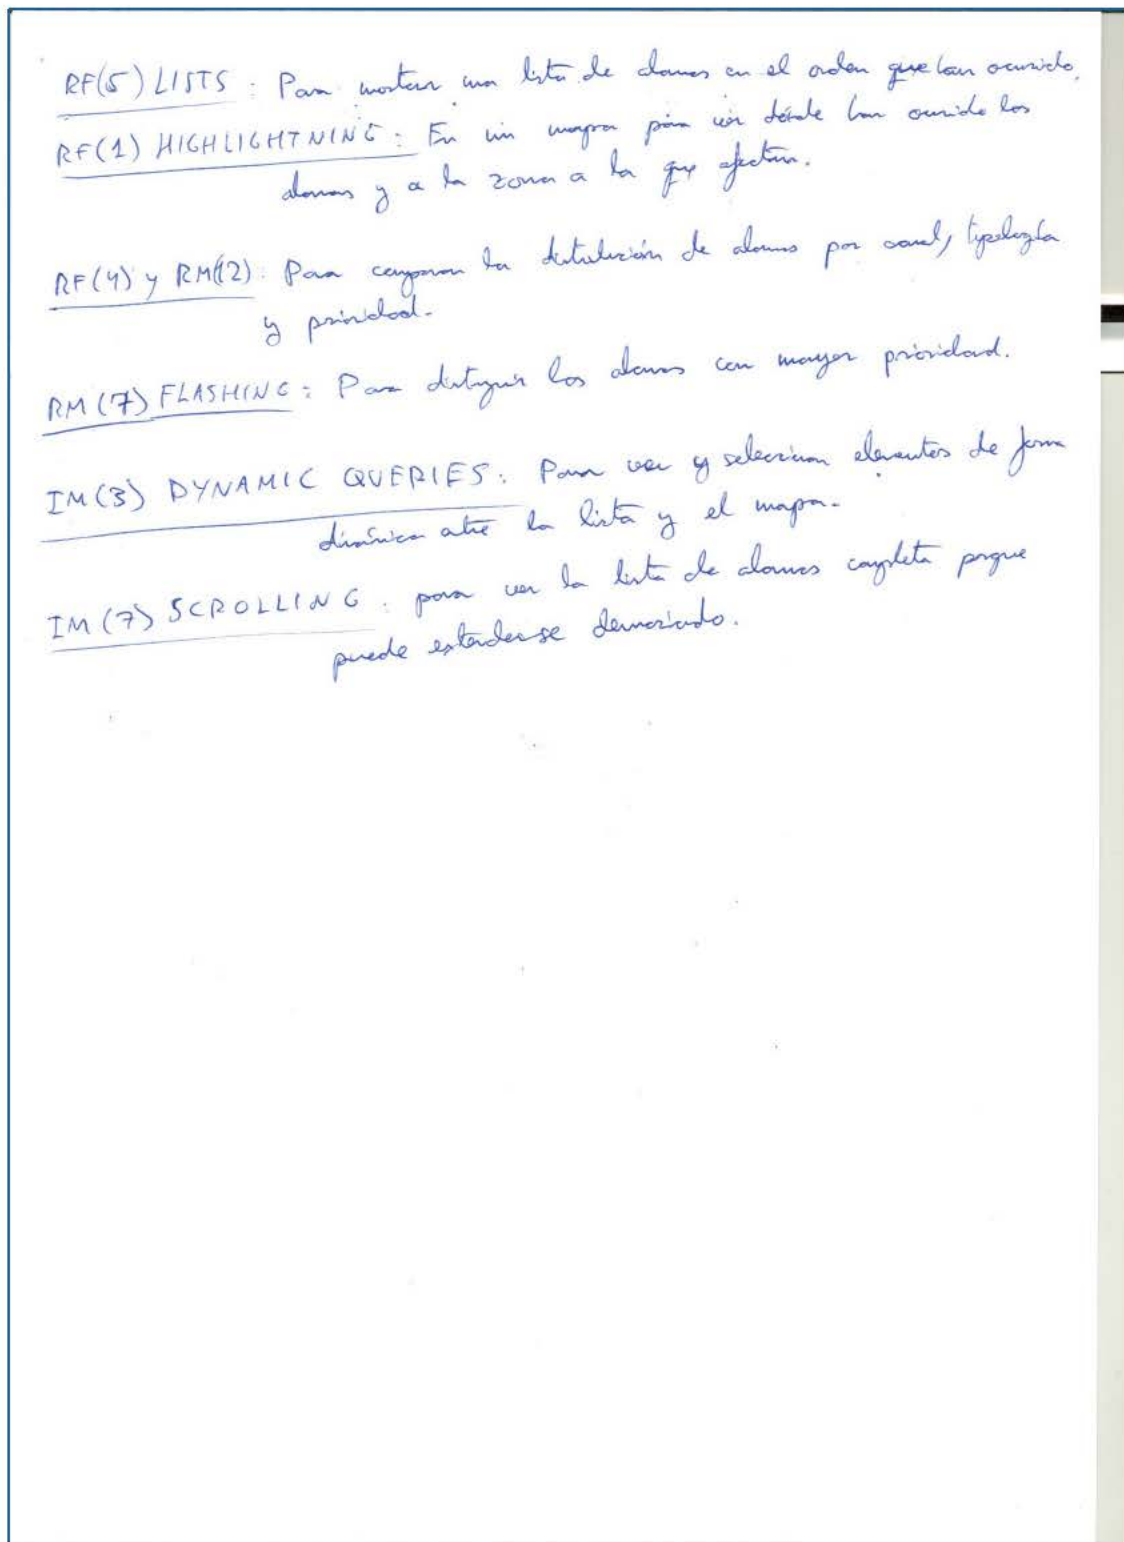 RF(5) LISTS : Para mostrar una lista de alarmas en el orden que han ocurrido.
RF(1) HIGHLIGHTNING : En un mapa para ver dónde han ocurrido las
alarmas y a la zona a la que afectan.
RF(4) y RM(12) : Para comparar la distribución de alarmas por canal, typología
y prioridad.
RM(7) FLASHING : Para distinguir las alarmas con mayor prioridad.
IM(3) DYNAMIC QUERIES : Para ver y seleccionar elementos de forma
dinámica entre la lista y el mapa.
IM(7) SCROLLING : para ver la lista de alarmas completa porque
puede extenderse demasiado.